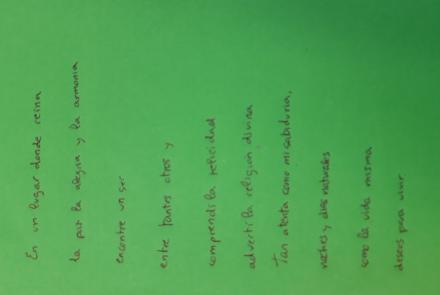 En un lugar donde reina
la paz la alegria y la armonia
encontre un ser
entre tantos otros y
comprendi la felicidad
adverti la religion divina
Tan atenta como mi sabiduria,
noches y dias naturales
como la vida misma
deseos para vivir